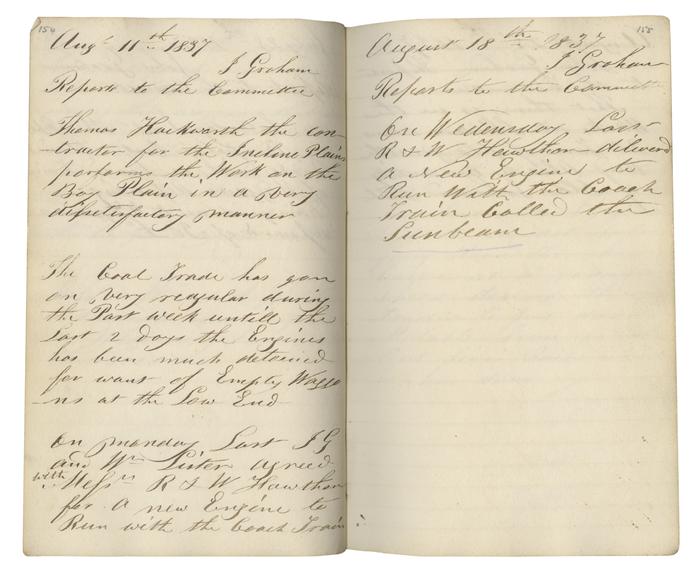 154
Augt 11th 1837
J Graham
Reports to the Committee
Thomas Hackworth the con-
tractor for the Incline Plains
performs the Work on the
Bog Plain in a very
dissetisfactory manner
The Coal Trade has gon
on very reagular during
the Past week untill the
Last 2 days the Engines
has been much detained
for want of Empty Waggo
-ns at the Low End
On monday Last JG
and Wm Lister agreed
with Messrs R & W Hawthorn
for a new Engine to
Run with the Coach Train
155
August 18th 1837
J Graham
Reports to the Committee
On Wedensday Last
R & W Hawthorn delivered
a New Engine to
Run With the Coach
Train Called the
Sunbeam